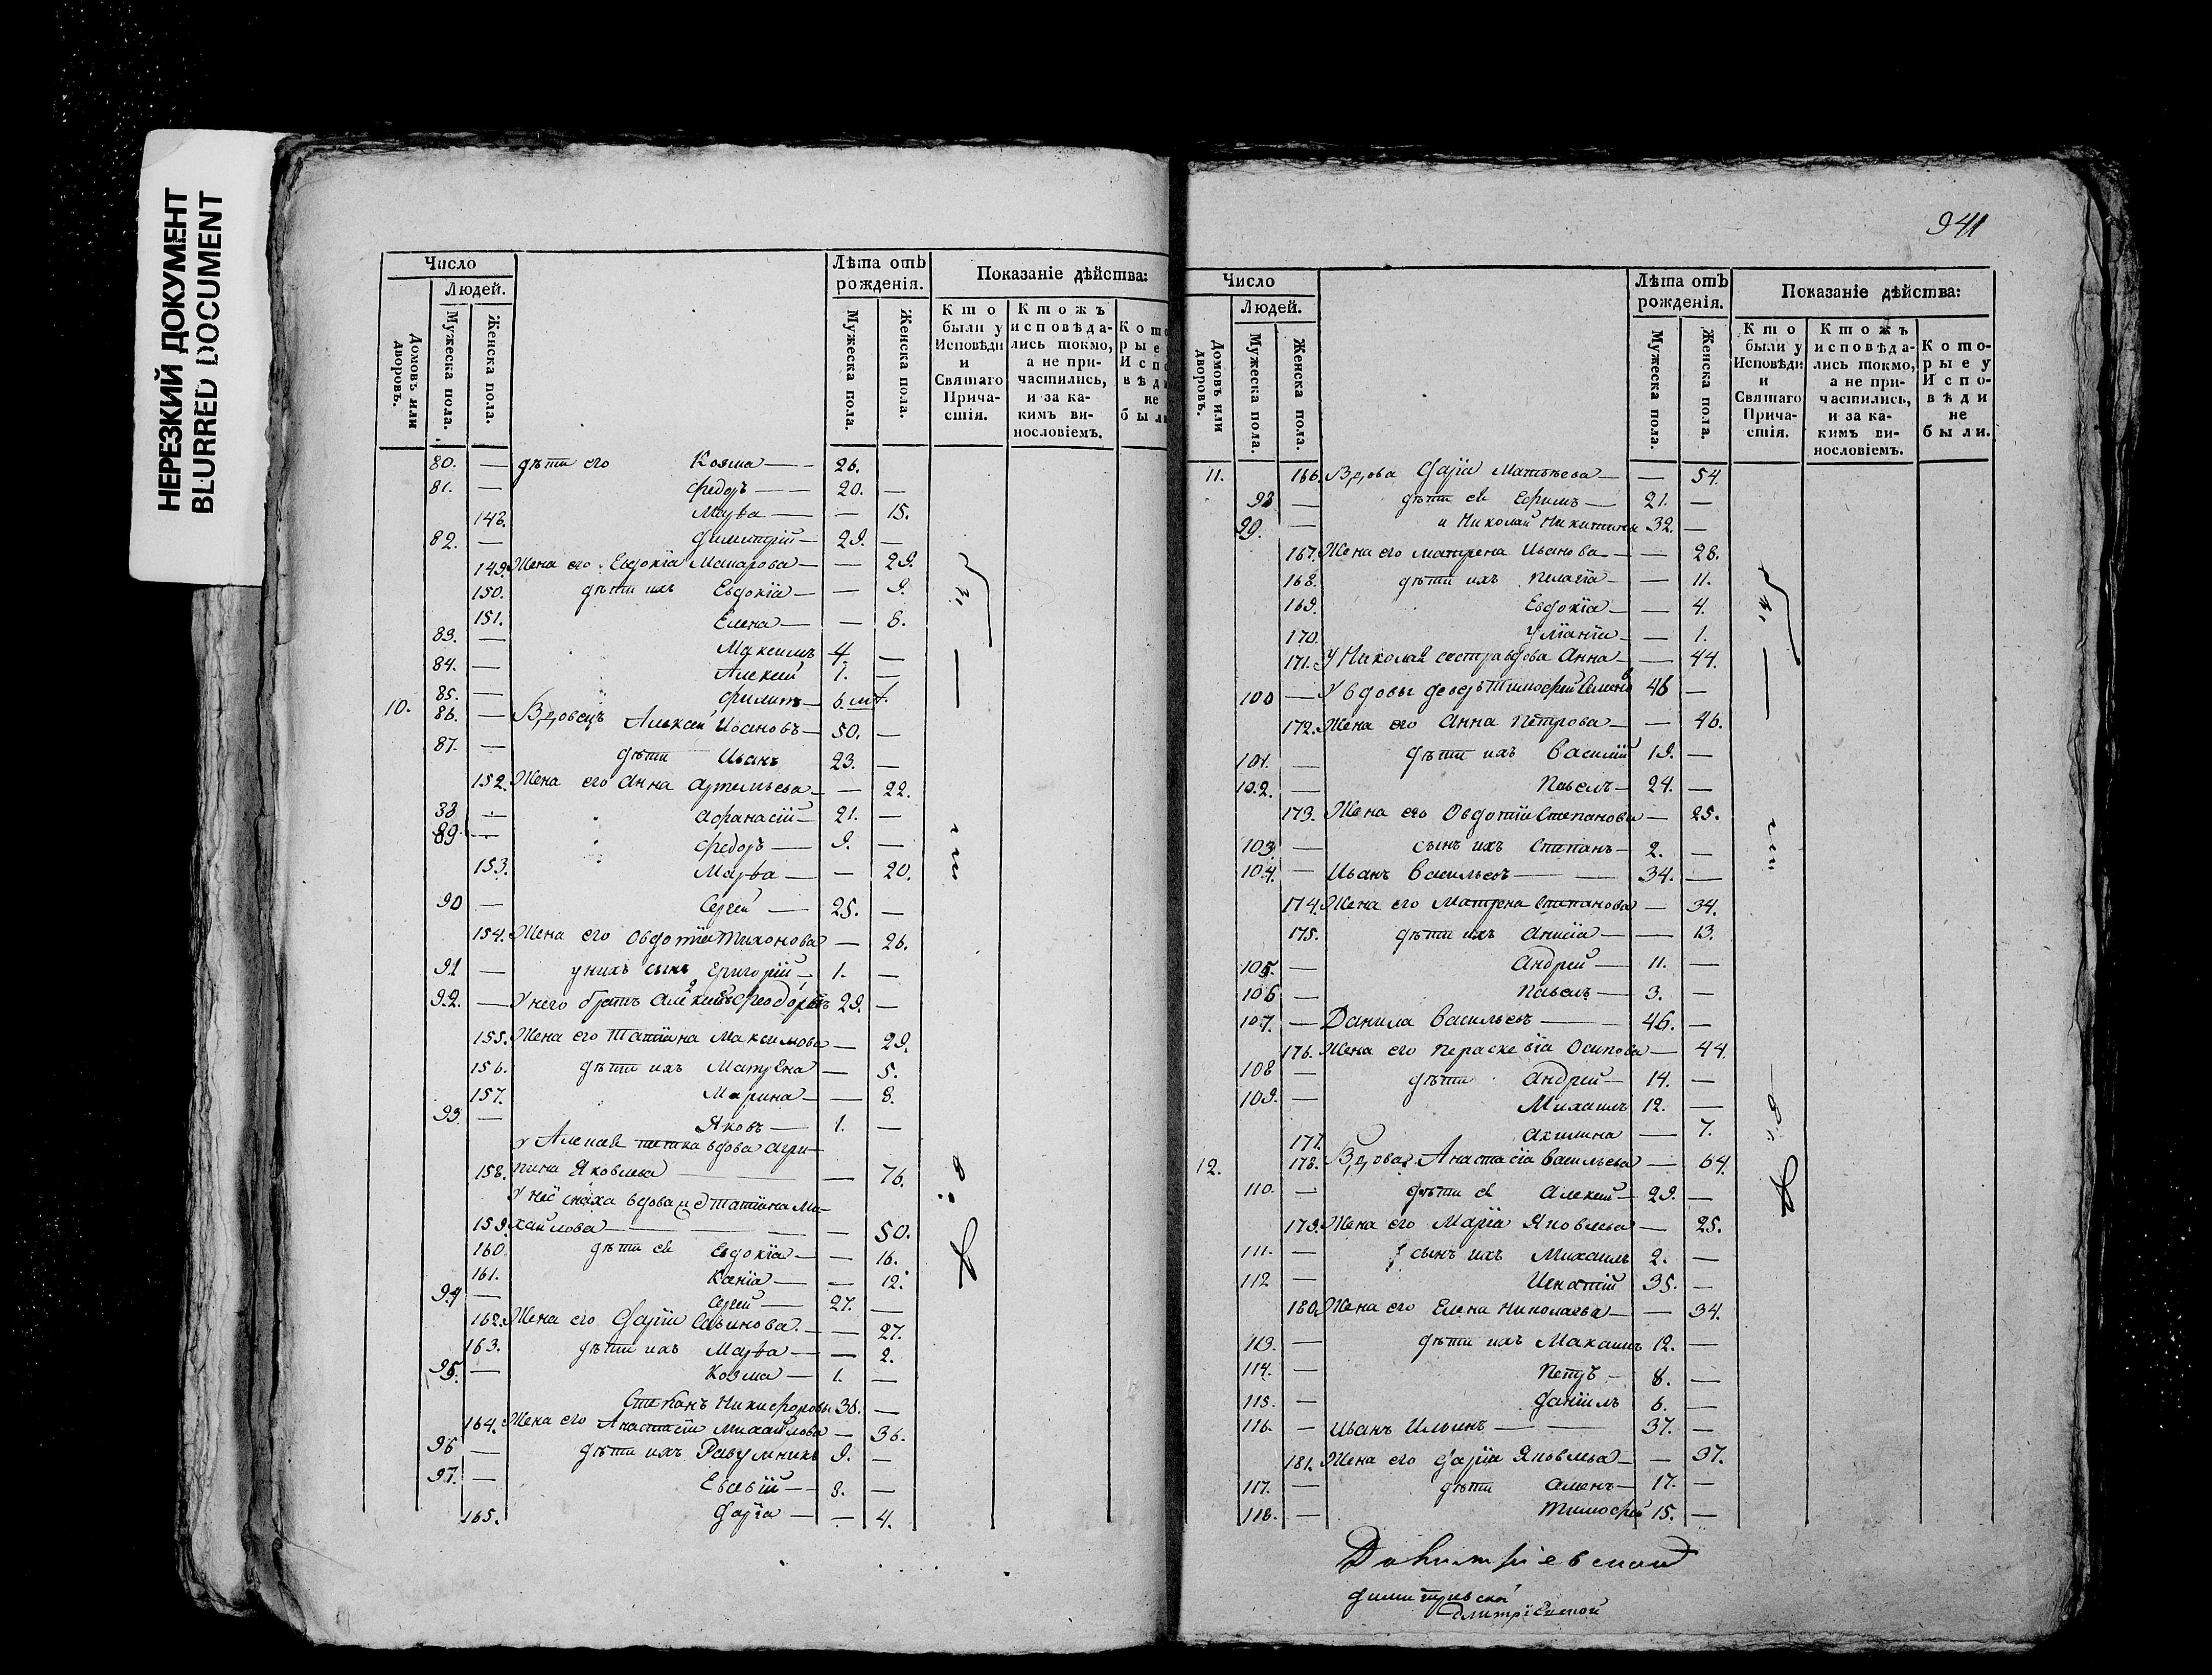 НЕРЕЗКИЙ ДОКУМЕНТ
BLURRED DOCUMENT
Число
Людей.
Домовъ или дворовъ.
Мужеска пола.
Женска пола.
Лѣта отъ рожденія.
Мужеска пола.
Женска пола.
Показаніе дѣйства:
Кто были у Исповѣди и Святаго Причастія.
Ктожъ исповѣдались токмо, а не причастились, и за какимъ винословіемъ.
80. — дѣти его Козма — 26.
81. — Федоръ — 20. —
148. Марѳа — — 15.
82. — Димитрій — 29. —
149. Жена его Евдокіа Макарова — — 29.
150. дѣти ихъ Евдокіа — — 9.
151. Елена — — 8.
83. — Максимъ 4. —
84. — Алексій 1. —
85. — Филипъ — 6. мѣ.
10. 86. — Вдовецъ Алексѣй Ивановъ — 50. —
87. — дѣти Иванъ 23. —
152. Жена его Анна Артемьева — — 22.
88 — Афанасій — 21. —
89 — Федоръ — 9. —
153. Марѳа — — 20.
90 — Сергей — 25. —
154. Жена его Овдотіа Тихонова — 26.
91 — у нихъ сынъ Григорій — 1. —
92. — У него братъ Алексѣй 29. —
155. Жена его Татіана Максимова — 29.
156. дѣти ихъ Матрена — 5.
157. Марина — — 8.
93. — Яковъ — 1. —
у Алексѣя тетка вдова Агри-
158. пина Яковлева — — 76.
У неё сноха вдова Татіана Ми-
159. хайлова — — 50.
160. дѣти ея Евдокіа — — 16.
161. Ксенія — — 12.
94 — Сергей — 27. —
162. Жена его Даріа Савинова. — — 27.
163. дѣти ихъ Марѳа — — 2.
95. — Козма — 1. —
Степанъ Никифоровъ 36. —
164. Жена его Анастасіа Михайлова — 36.
96 — дѣти ихъ Разумникъ 9. —
97. — Евсевій — 8. —
165. Даріа — — 4.
941
Число
Людей.
Домовъ или дворовъ.
Мужеска пола.
Женска пола.
Лѣта отъ рожденія.
Мужеска пола.
Женска пола.
Показаніе дѣйства:
Кто были у Исповѣди и Святаго Причастія.
Ктожъ исповѣдались токмо, а не причастились, и за какимъ винословіемъ.
Которые у Исповѣди не были.
11. 166. Вдова Даріа Матвѣева — — 54.
98 — дѣти ея Ефимъ — 21. —
99. — и Николай Никитины 32. —
167. Жена его Матрена Иванова — — 28.
168. дѣти ихъ Пелагіа — — 11.
169. Евдокіа — — 4.
170. Уліаніа — — 1.
171. У Николая сестра вдова Анна — — 44.
100 — У вдовы деверь Тимофей 46 —
172. Жена его Анна Петрова — — 46.
101. — дѣти ихъ Василій 19. —
102. — Павелъ — 24. —
173. Жена его Овдотіа Степанова — 25.
103 — сынъ ихъ Степанъ — 2. —
104. — Иванъ Васильевъ — 34. —
174. Жена его Матрена Степанова — 34.
175. дѣти ихъ Анисіа — — 13.
105. — Андрей — 11. —
106 — Павелъ — 3. —
107. — Данила Васильевъ — 46. —
176. Жена его Параскевіа Осипова — 44.
108 — дѣти Андрей — 14. —
109. — Михаилъ 12. —
177. Акилина — 7.
12. 178. Вдова Анастасіа Васильева — 64.
110. — дѣти ея Алексій — 29. —
179. Жена его Маріа Яковлева — 25.
111. — сынъ ихъ Михаилъ 2. —
112 — Игнатій 35. —
180. Жена его Елена Николаева — — 34.
113. — дѣти ихъ Михаилъ 12. —
114. — Петръ — 8. —
115. — Даніилъ 6. —
116. — Иванъ Ильинъ — 37. —
181. Жена его Даріа Яковлева — — 37.
117. — дѣти — 17. —
118. — Тимофей 15. —
Димитріевской